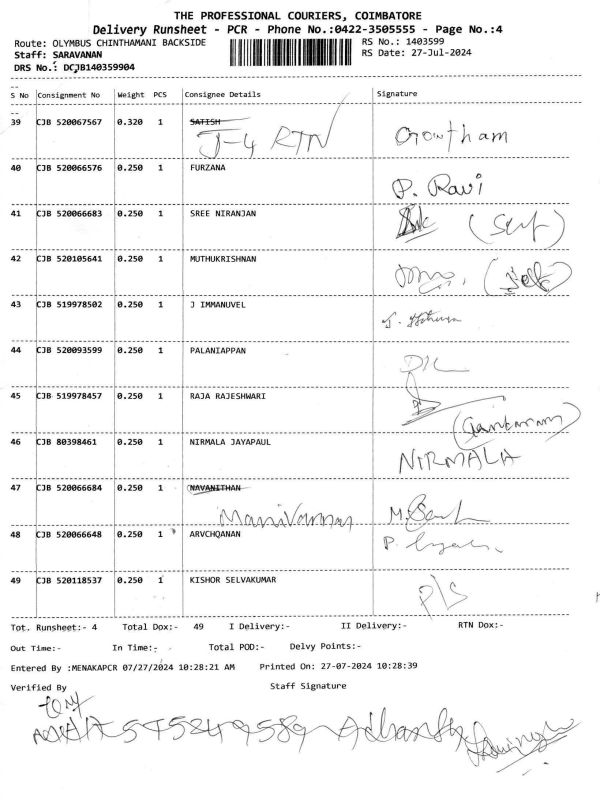 THE PROFESSIONAL COURIERS, COIMBATORE
Delivery Runsheet - PCR - Phone No.:0422-3505555 - Page No.:4
Route: OLYMBUS CHINTHAMANI BACKSIDE RS No.: 1403599
Staff: SARAVANAN RS Date: 27-Jul-2024
DRS No.: DCJB140359904
S No Consignment No Weight PCS Consignee Details Signature
39 CJB 520067567 0.320 1 SATISH
J-4 RTN Gowtham
40 CJB 520066576 0.250 1 FURZANA
P. Ravi
41 CJB 520066683 0.250 1 SREE NIRANJAN
(Self)
42 CJB 520105641 0.250 1 MUTHUKRISHNAN
(Self)
43 CJB 519978502 0.250 1 J IMMANUVEL
44 CJB 520093599 0.250 1 PALANIAPPAN
45 CJB 519978457 0.250 1 RAJA RAJESHWARI
46 CJB 80398461 0.250 1 NIRMALA JAYAPAUL
NIRMALA
47 CJB 520066684 0.250 1 NAVANITHAN
Manivannan
48 CJB 520066648 0.250 1 ARVCHQANAN
49 CJB 520118537 0.250 1 KISHOR SELVAKUMAR
P/S
Tot. Runsheet:- 4 Total Dox:- 49 I Delivery:- II Delivery:- RTN Dox:-
Out Time:- In Time:- Total POD:- Delvy Points:-
Entered By :MENAKAPCR 07/27/2024 10:28:21 AM Printed On: 27-07-2024 10:28:39
Verified By Staff Signature